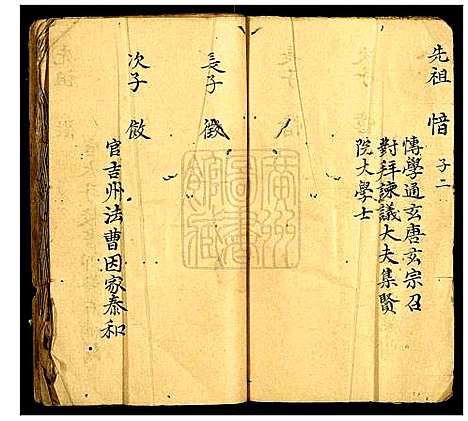 先祖 愔 子二
博學通玄唐玄宗召
對拜諫議大夫集賢
院大學士
長子 徵
次子 斂
官吉州法曹因家泰和
廣州
圖書
館藏